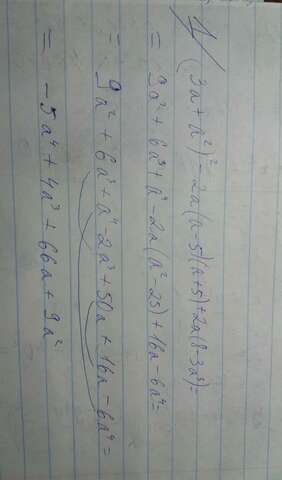 1/ (3a+a²)² - 2a(a-5)(a+5) + 2a(8-3a³) =
= 9a² + 6a³ + a⁴ - 2a(a² - 25) + 16a - 6a⁴ =
= 9a² + 6a³ + a⁴ - 2a³ + 50a + 16a - 6a⁴ =
= -5a⁴ + 4a³ + 66a + 9a²